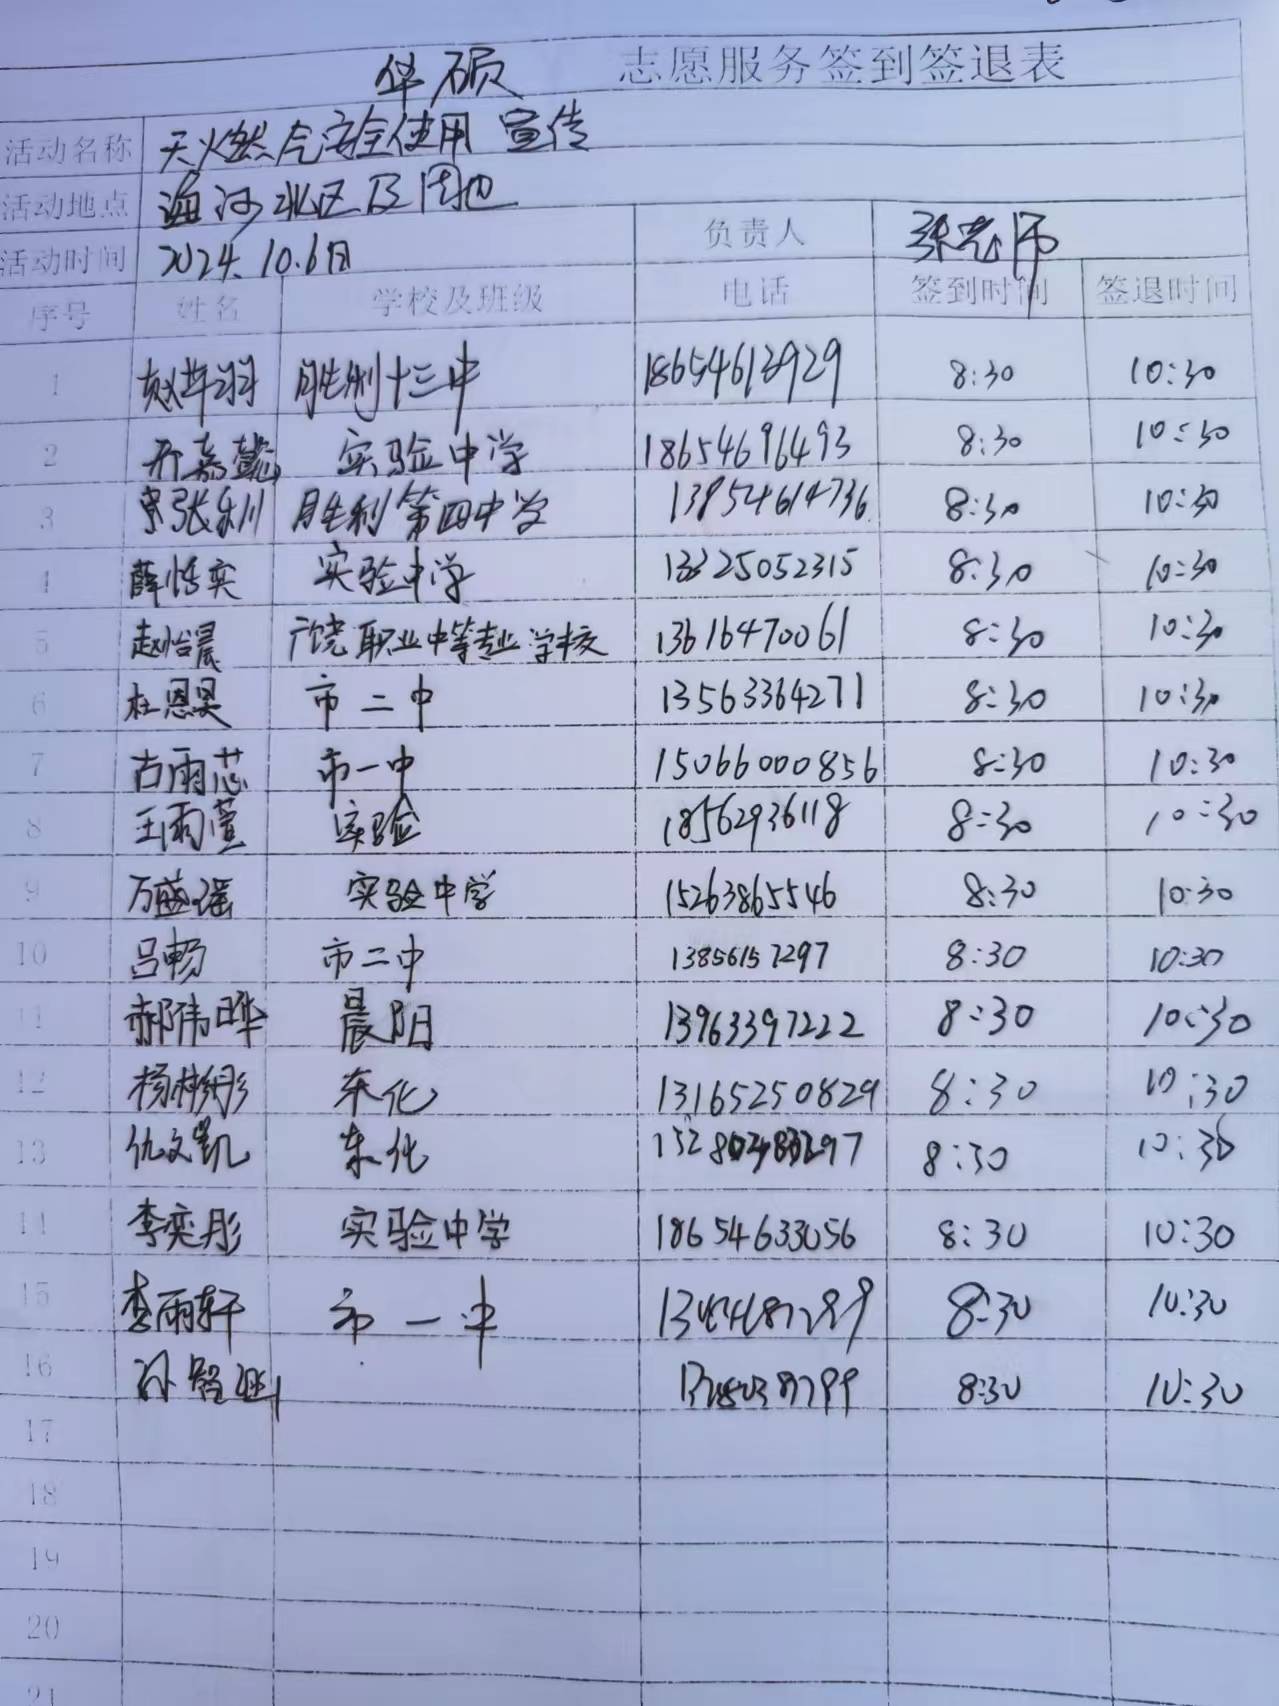 华硕 志愿服务签到签退表
活动名称 天火燃气安全使用宣传
活动地点 海河北区及团地
活动时间 2024.10.6日 负责人 张老师
序号 姓名 学校及班级 电话 签到时间 签退时间
1 赵华羽 胜利十三中 18654612929 8:30 10:30
2 乔嘉懿 实验中学 18654696493 8:30 10:30
3 张乐川 胜利第四中学 13954614736 8:30 10:30
4 薛恬实 实验中学 13325052315 8:30 10:30
5 赵怡晨 广饶职业中等专业学校 13616470061 8:30 10:30
6 杜恩昊 市二中 13563364271 8:30 10:30
7 古雨芯 市一中 15066000856 8:30 10:30
8 王雨萱 实验 18562936118 8:30 10:30
9 万盛瑶 实验中学 15263865546 8:30 10:30
10 吕畅 市二中 13856157297 8:30 10:30
11 郝伟晔 晨阳 13963397222 8:30 10:30
12 杨彬彤 东化 13165250829 8:30 10:30
13 仇文凯 东化 8:30 10:30
14 李奕彤 实验中学 18654633056 8:30 10:30
15 李雨轩 市一中 8:30 10:30
16 孙智 8:30 10:30
17
18
19
20
21